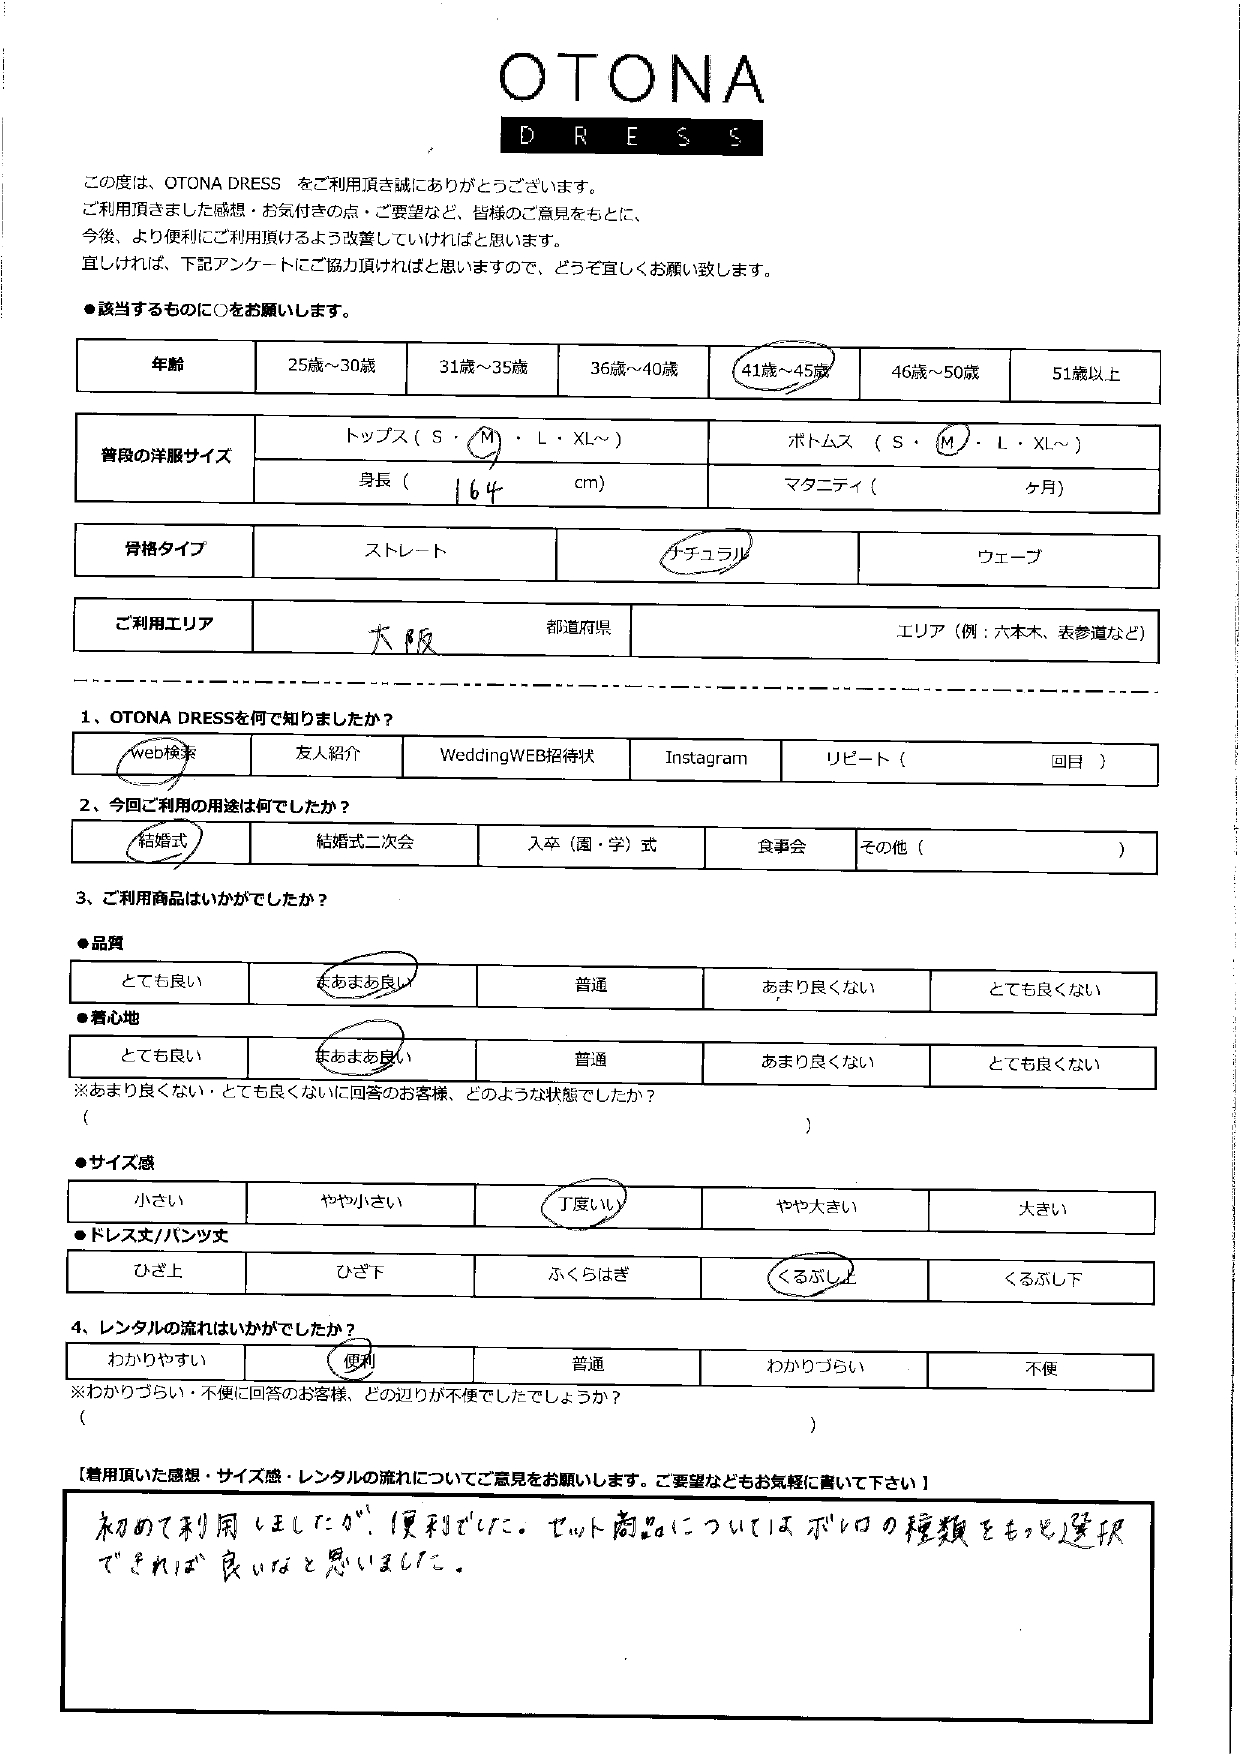 OTONA
DRESS
この度は、OTONA DRESS　をご利用頂き誠にありがとうございます。
ご利用頂きました感想・お気付きの点・ご要望など、皆様のご意見をもとに、
今後、より便利にご利用頂けるよう改善していければと思います。
宜しければ、下記アンケートにご協力頂ければと思いますので、どうぞ宜しくお願い致します。
●該当するものに○をお願いします。
年齢 25歳～30歳 31歳～35歳 36歳～40歳 41歳～45歳 46歳～50歳 51歳以上
普段の洋服サイズ トップス ( S ・ M ・ L ・ XL～ ) ボトムス ( S ・ M ・ L ・ XL～ )
身長 ( 164 cm) マタニティ ( ヶ月)
骨格タイプ ストレート ナチュラル ウェーブ
ご利用エリア 大阪 都道府県 エリア（例：六本木、表参道など）
1、OTONA DRESSを何で知りましたか？
web検索 友人紹介 WeddingWEB招待状 Instagram リピート ( 回目 )
2、今回ご利用の用途は何でしたか？
結婚式 結婚式二次会 入卒（園・学）式 食事会 その他 ( )
3、ご利用商品はいかがでしたか？
●品質
とても良い まあまあ良い 普通 あまり良くない とても良くない
●着心地
とても良い まあまあ良い 普通 あまり良くない とても良くない
※あまり良くない・とても良くないに回答のお客様、どのような状態でしたか？
( )
●サイズ感
小さい やや小さい 丁度いい やや大きい 大きい
●ドレス丈/パンツ丈
ひざ上 ひざ下 ふくらはぎ くるぶし上 くるぶし下
4、レンタルの流れはいかがでしたか？
わかりやすい 便利 普通 わかりづらい 不便
※わかりづらい・不便に回答のお客様、どの辺りが不便でしたでしょうか？
( )
【着用頂いた感想・サイズ感・レンタルの流れについてご意見をお願いします。ご要望などもお気軽に書いて下さい】
初めて利用しましたが、便利でした。セット商品についてはボレロの種類をもっと選択
できれば良いなと思いました。